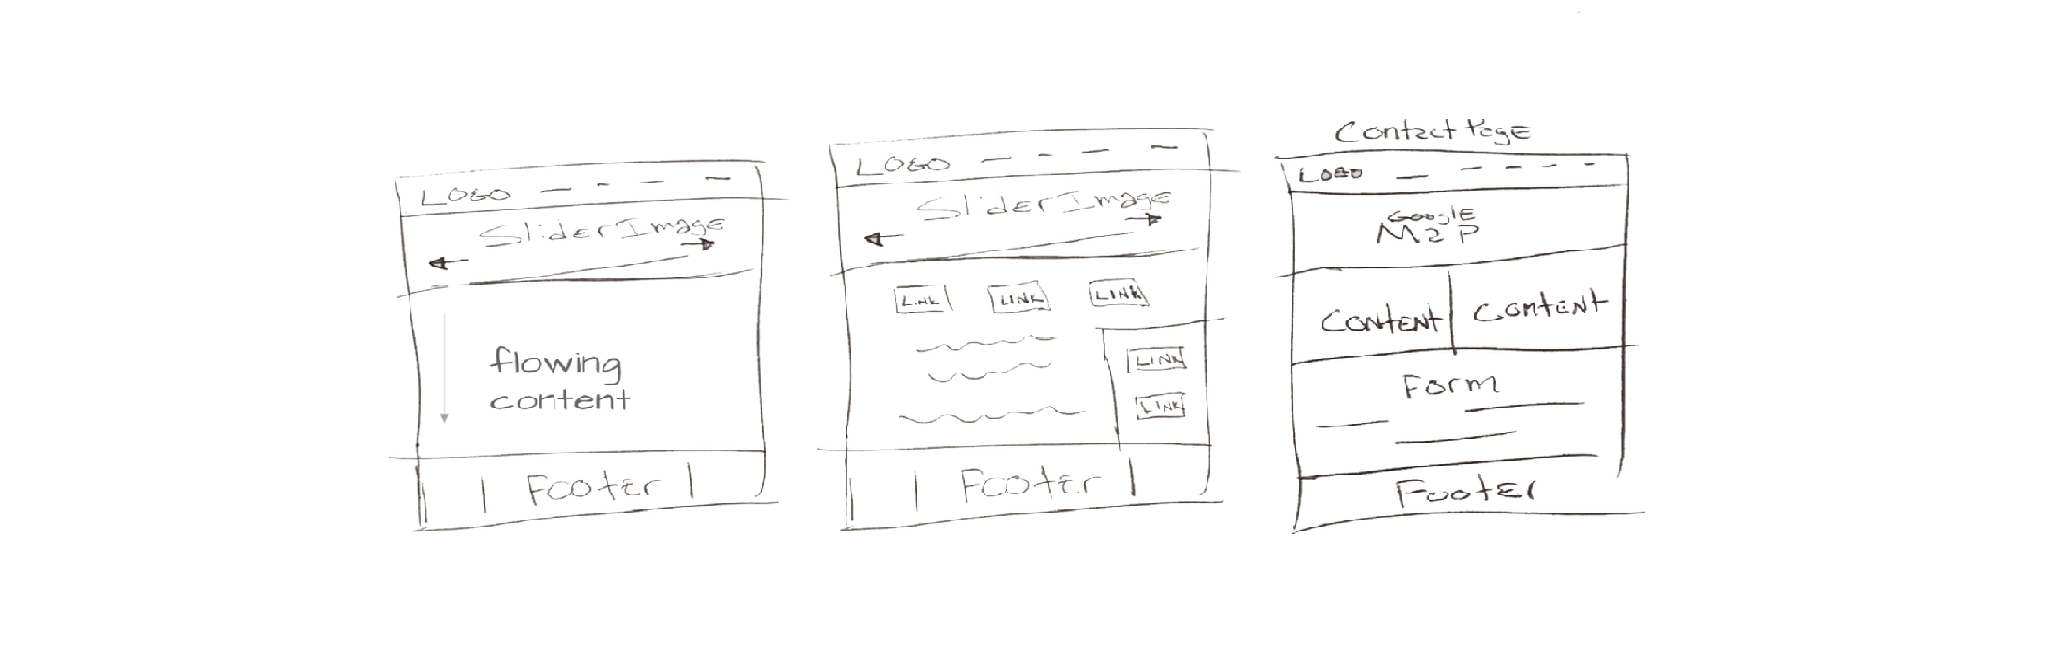 LOGO
Slider Image
flowing
content
Footer
LOGO
Slider Image
LINK LINK LINK
LINK
LINK
Footer
Contact Page
LOGO
Google
Map
Content Content
Form
Footer